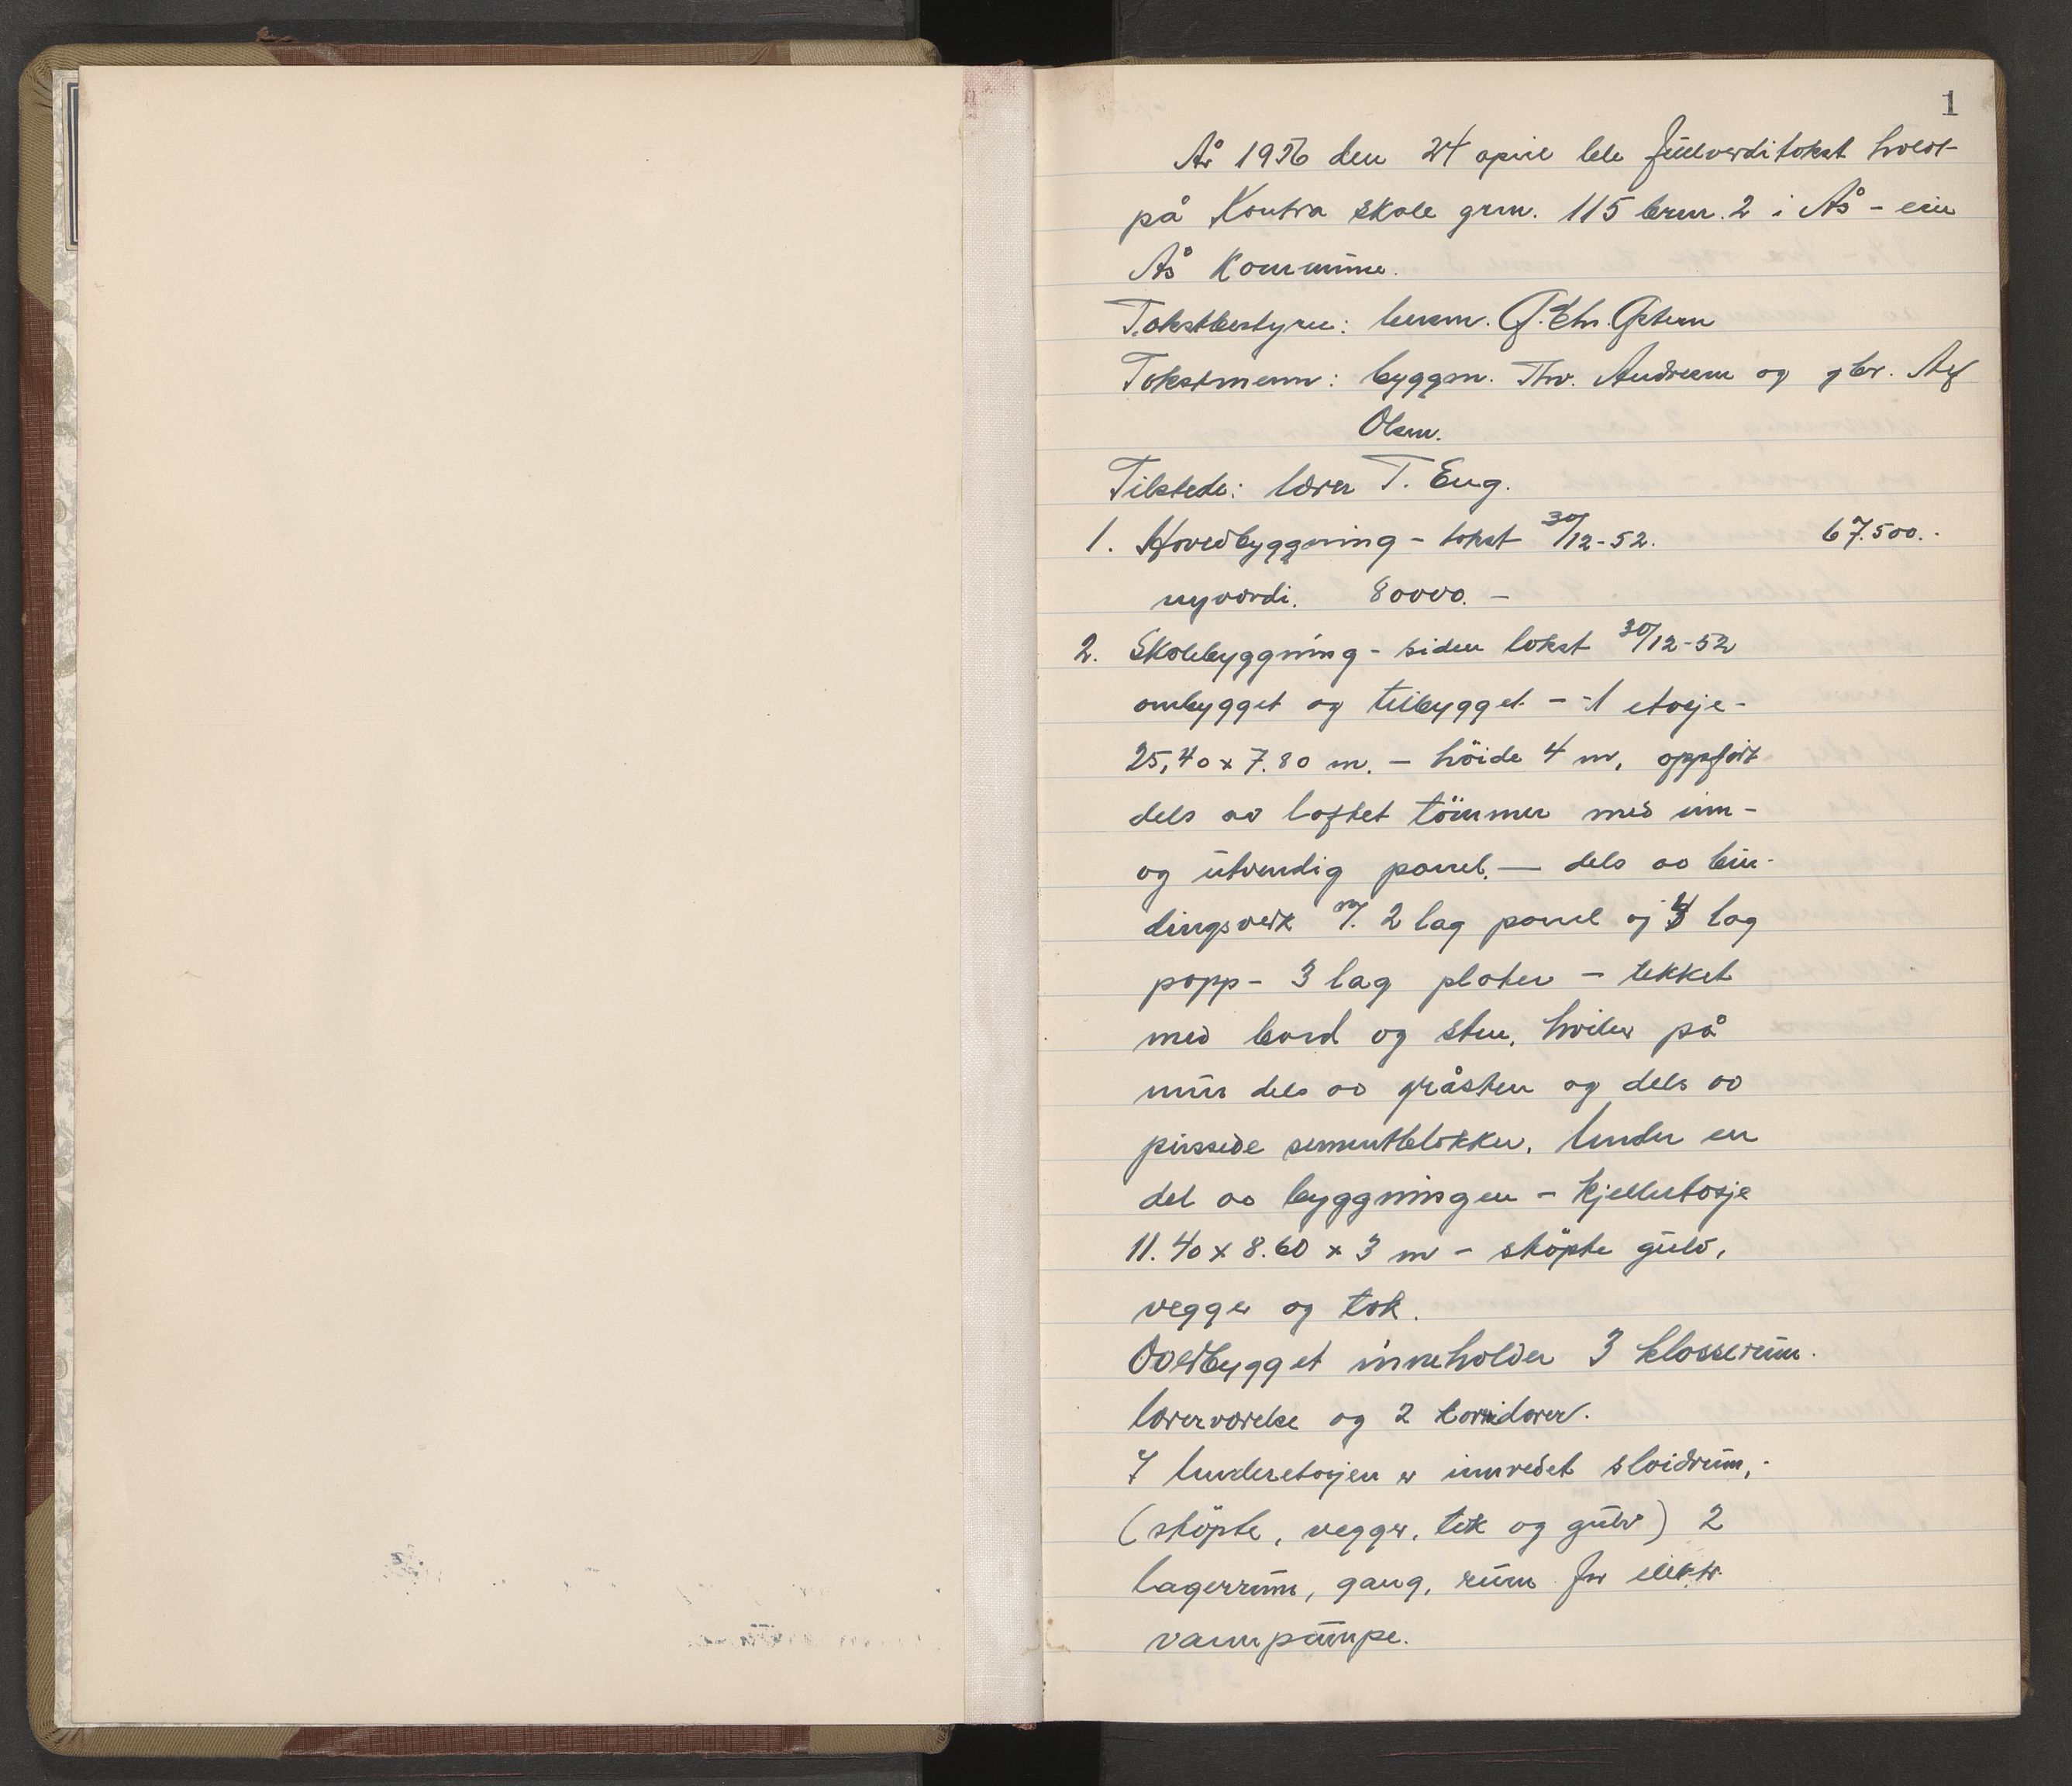 1
År 1956 den 24 april ble fullverditakst holdt
på Kontra skole grm. 115 brm. 2 i Ås - eier
Ås Kommune.
Takstbestyrer: lensm.
Takstmenn: byggm. Thv. Andresen og gbr.
Olsen.
Tilstede: lærer T. Eng.
1. Hovedbyggning - takst 30/12-52. 67.500.-
nyverdi. 80000.-
2. Skolebyggning - siden takst 30/12-52
ombygget og tilbygget - 1 etasje -
25,40 x 7.80 m. - höide 4 m, oppfört
dels av laftet tömmer med inn-
og utvendig panel. — dels av bin-
dingsverk m/. 2 lag panel og 4 lag
papp - 3 lag plater - tekket
med bord og sten, hviler på
mur dels av gråsten og dels av
pussede sementblokker. Under en
del av byggningen - kjelleretasje
11.40 x 8.60 x 3 m - stöpte gulv,
vegger og tak.
Ovenbygget inneholder 3 klasserum.
lærerværelse og 2 korridorer.
I underetasjen er innredet sløidrum,-
(stöpte, vegger, tak og gulv) 2
lagerrum, gang, rum for elektr.
vannpumpe.